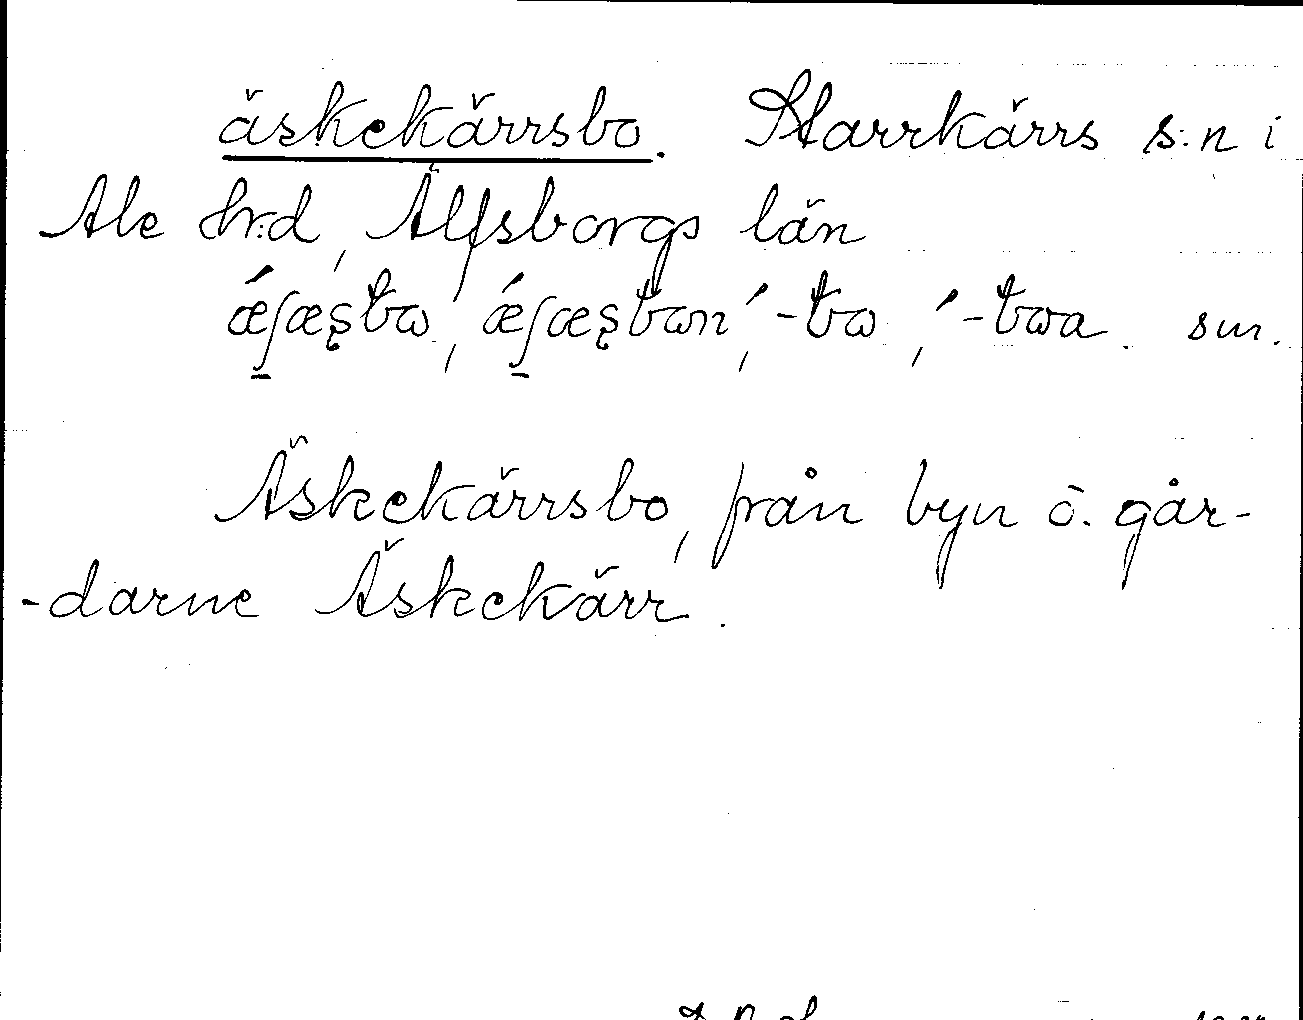 äskekärrsbo. Starrkärrs s:n i
Ale hr:d, Älfsborgs län
ǽʃæʂbɷ, ǽʃæʂbɷn, ´-bɷ, ´-bɷa. sm.
Äskekärrsbo, från byn o. går-
-darne Äskekärr.